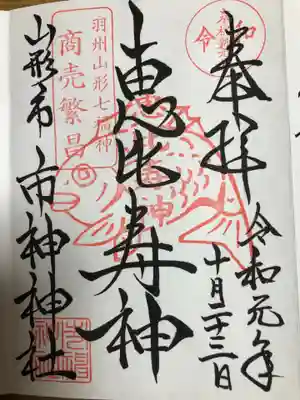 奉拝
令和元年
十月二十三日
恵比寿神
羽州山形七福神
商売繁昌
山形市 市神神社
令和